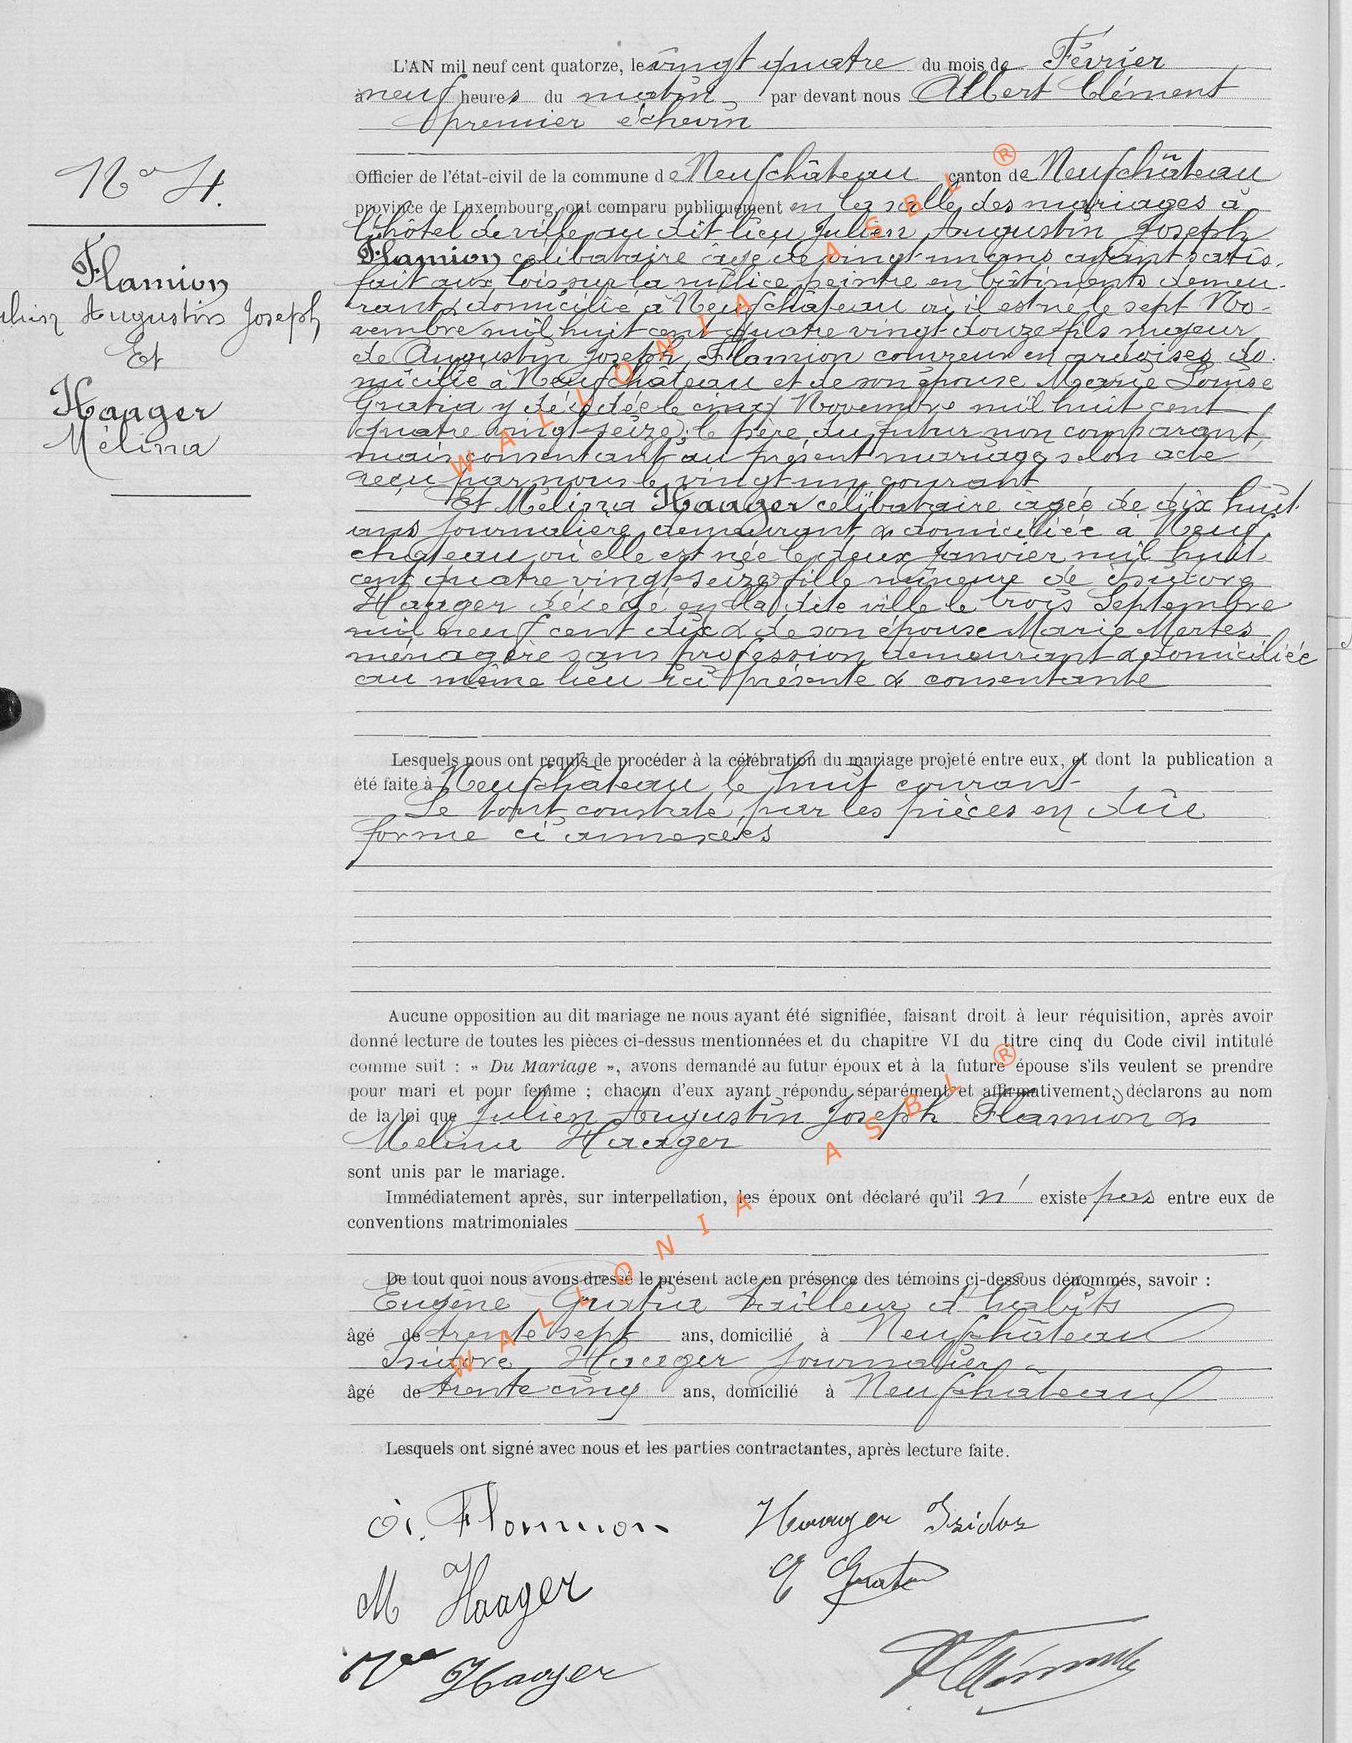 L'AN mil neuf cent quatorze, le vingt quatre du mois de Février
à neuf heures du matin par devant nous Albert Clément
premier échevin
Officier de l'état-civil de la commune de Neufchâteau canton de Neufchâteau
province de Luxembourg, ont comparu publiquement en la salle des mariages à
l'hôtel de ville au dit lieu Julien Augustin Joseph
Flamion célibataire âgé de vingt un ans ayant satis-
fait aux lois sur la milice peintre en bâtiments demeu-
rant & domicilié à Neufchâteau où il est né le sept No-
vembre mil huit cent quatre vingt douze fils majeur
de Augustin Joseph Flamion couvreur en ardoises do-
micilié à Neufchâteau et de son épouse Marie Louise
Gratia y décédée le cinq Novembre mil huit cent
quatre vingt-seize; le père du futur non comparant,
mais consentant au présent mariage selon acte
reçu par nous le vingt un courant
Et Mélina Haager célibataire âgée de dix huit
ans journalière demeurant & domiciliée à Neuf-
château où elle est née le deux Janvier mil huit
cent quatre vingt-seize fille mineure de Isidore
Haager décédé en la dite ville le trois Septembre
mil neuf cent dix & de son épouse Marie Mertes
ménagère sans profession demeurant & domiciliée
au même lieu ici présente & consentante
N° 4.
Flamion
Julien Augustin Joseph
Et
Haager
Mélina
Lesquels nous ont requis de procéder à la célébration du mariage projeté entre eux, et dont la publication a
été faite à Neufchâteau le huit courant
Le tout constaté par les pièces en dûe
forme ci annexées
Aucune opposition au dit mariage ne nous ayant été signifiée, faisant droit à leur réquisition, après avoir
donné lecture de toutes les pièces ci-dessus mentionnées et du chapitre VI du titre cinq du Code civil intitulé
comme suit : « Du Mariage », avons demandé au futur époux et à la future épouse s'ils veulent se prendre
pour mari et pour femme ; chacun d'eux ayant répondu séparément et affirmativement, déclarons au nom
de la loi que Julien Augustin Joseph Flamion &
Melina Haager
sont unis par le mariage.
Immédiatement après, sur interpellation, les époux ont déclaré qu'il n' existe pas entre eux de
conventions matrimoniales
De tout quoi nous avons dressé le présent acte en présence des témoins ci-dessous dénommés, savoir :
Eugène Gratia tailleur d'habits
âgé de trente sept ans, domicilié à Neufchâteau
Isidore Haager journalier
âgé de trente cinq ans, domicilié à Neufchâteau
Lesquels ont signé avec nous et les parties contractantes, après lecture faite.
Flamion Haager Isidor
M Haager E Gratia
Vve Haager
WALLONIA ASBL ®
WALLONIA ASBL ®